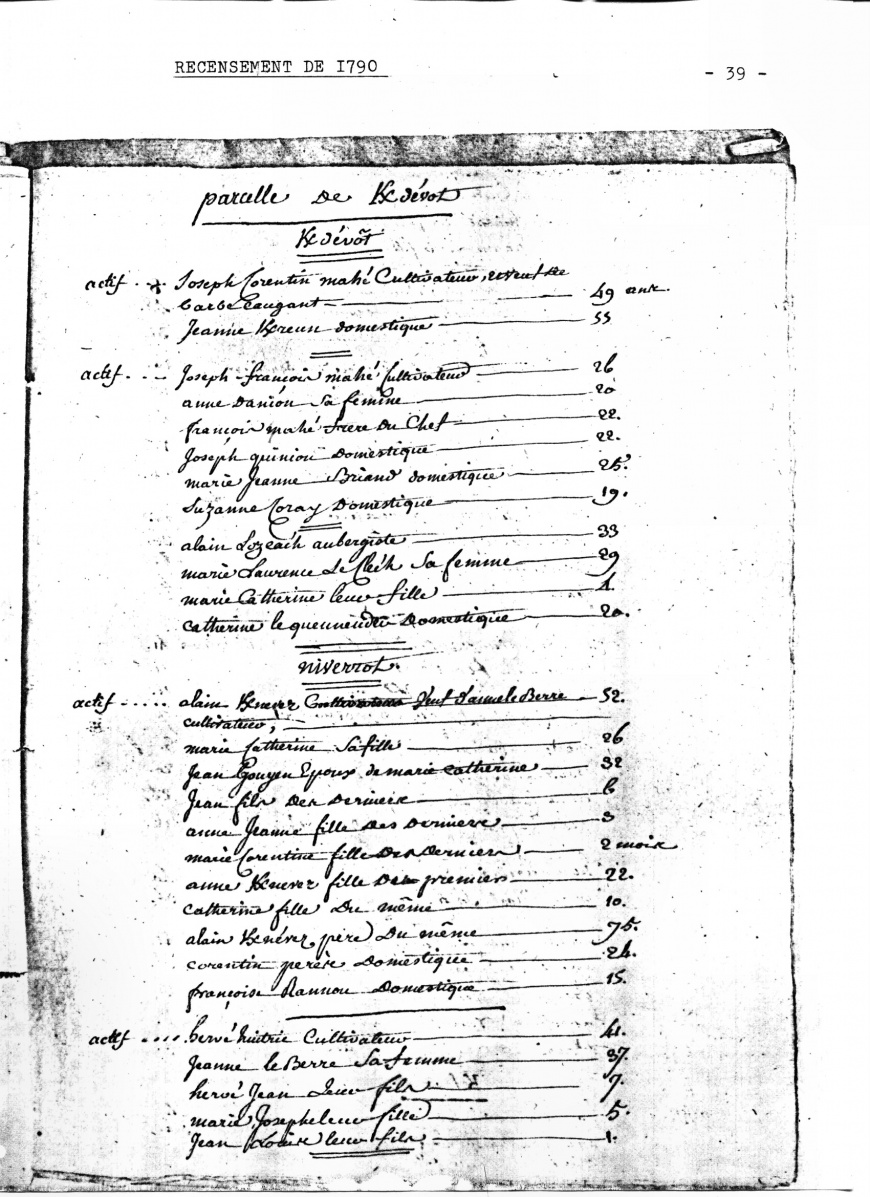 RECENSEMENT DE I790
- 39 -
parcelle de Kdévot
Kdévot
actif . . Joseph Corentin mahé Cultivateur, veuf de
barbe Caugant — 49 ans.
Jeanne Kreun domestique — 55
actif . . . Joseph françois mahé Cultivateur — 26
anne Daniou Sa femme — 20
françois mahé frere du Chef — 22.
Joseph quiniou Domestique — 22.
marie Jeanne Briand domestique — 25.
Suzanne Coray Domestique — 19.
alain Lozeach aubergiste — 33
marie Laurence Le Cleh Sa femme — 29
marie Catherine leur fille — 1.
catherine le Domestique — 20.
niverrot.
actif ..... alain Knevez Cultivateur Veuf d'anne le Berre — 52.
cultivateur, —
marie Catherine Sa fille — 26
Jean Gouyen Epoux de marie Catherine — 32
Jean fils des Derniers — 6
anne Jeanne fille des Derniers — 3
marie Corentine fille des Derniers — 2 mois
anne Knevez fille des premiers — 22.
Catherine fille Du même — 10.
alain Knévez père Du même — 75.
corentin Domestique — 24.
françoise Rannou Domestique — 15.
actif .... hervé Cultivateur — 41.
Jeanne le Berre Sa femme — 37.
hervé Jean Leur fils — 7.
marie Josephe leur fille — 5.
Jean Louis leur fils — 1.